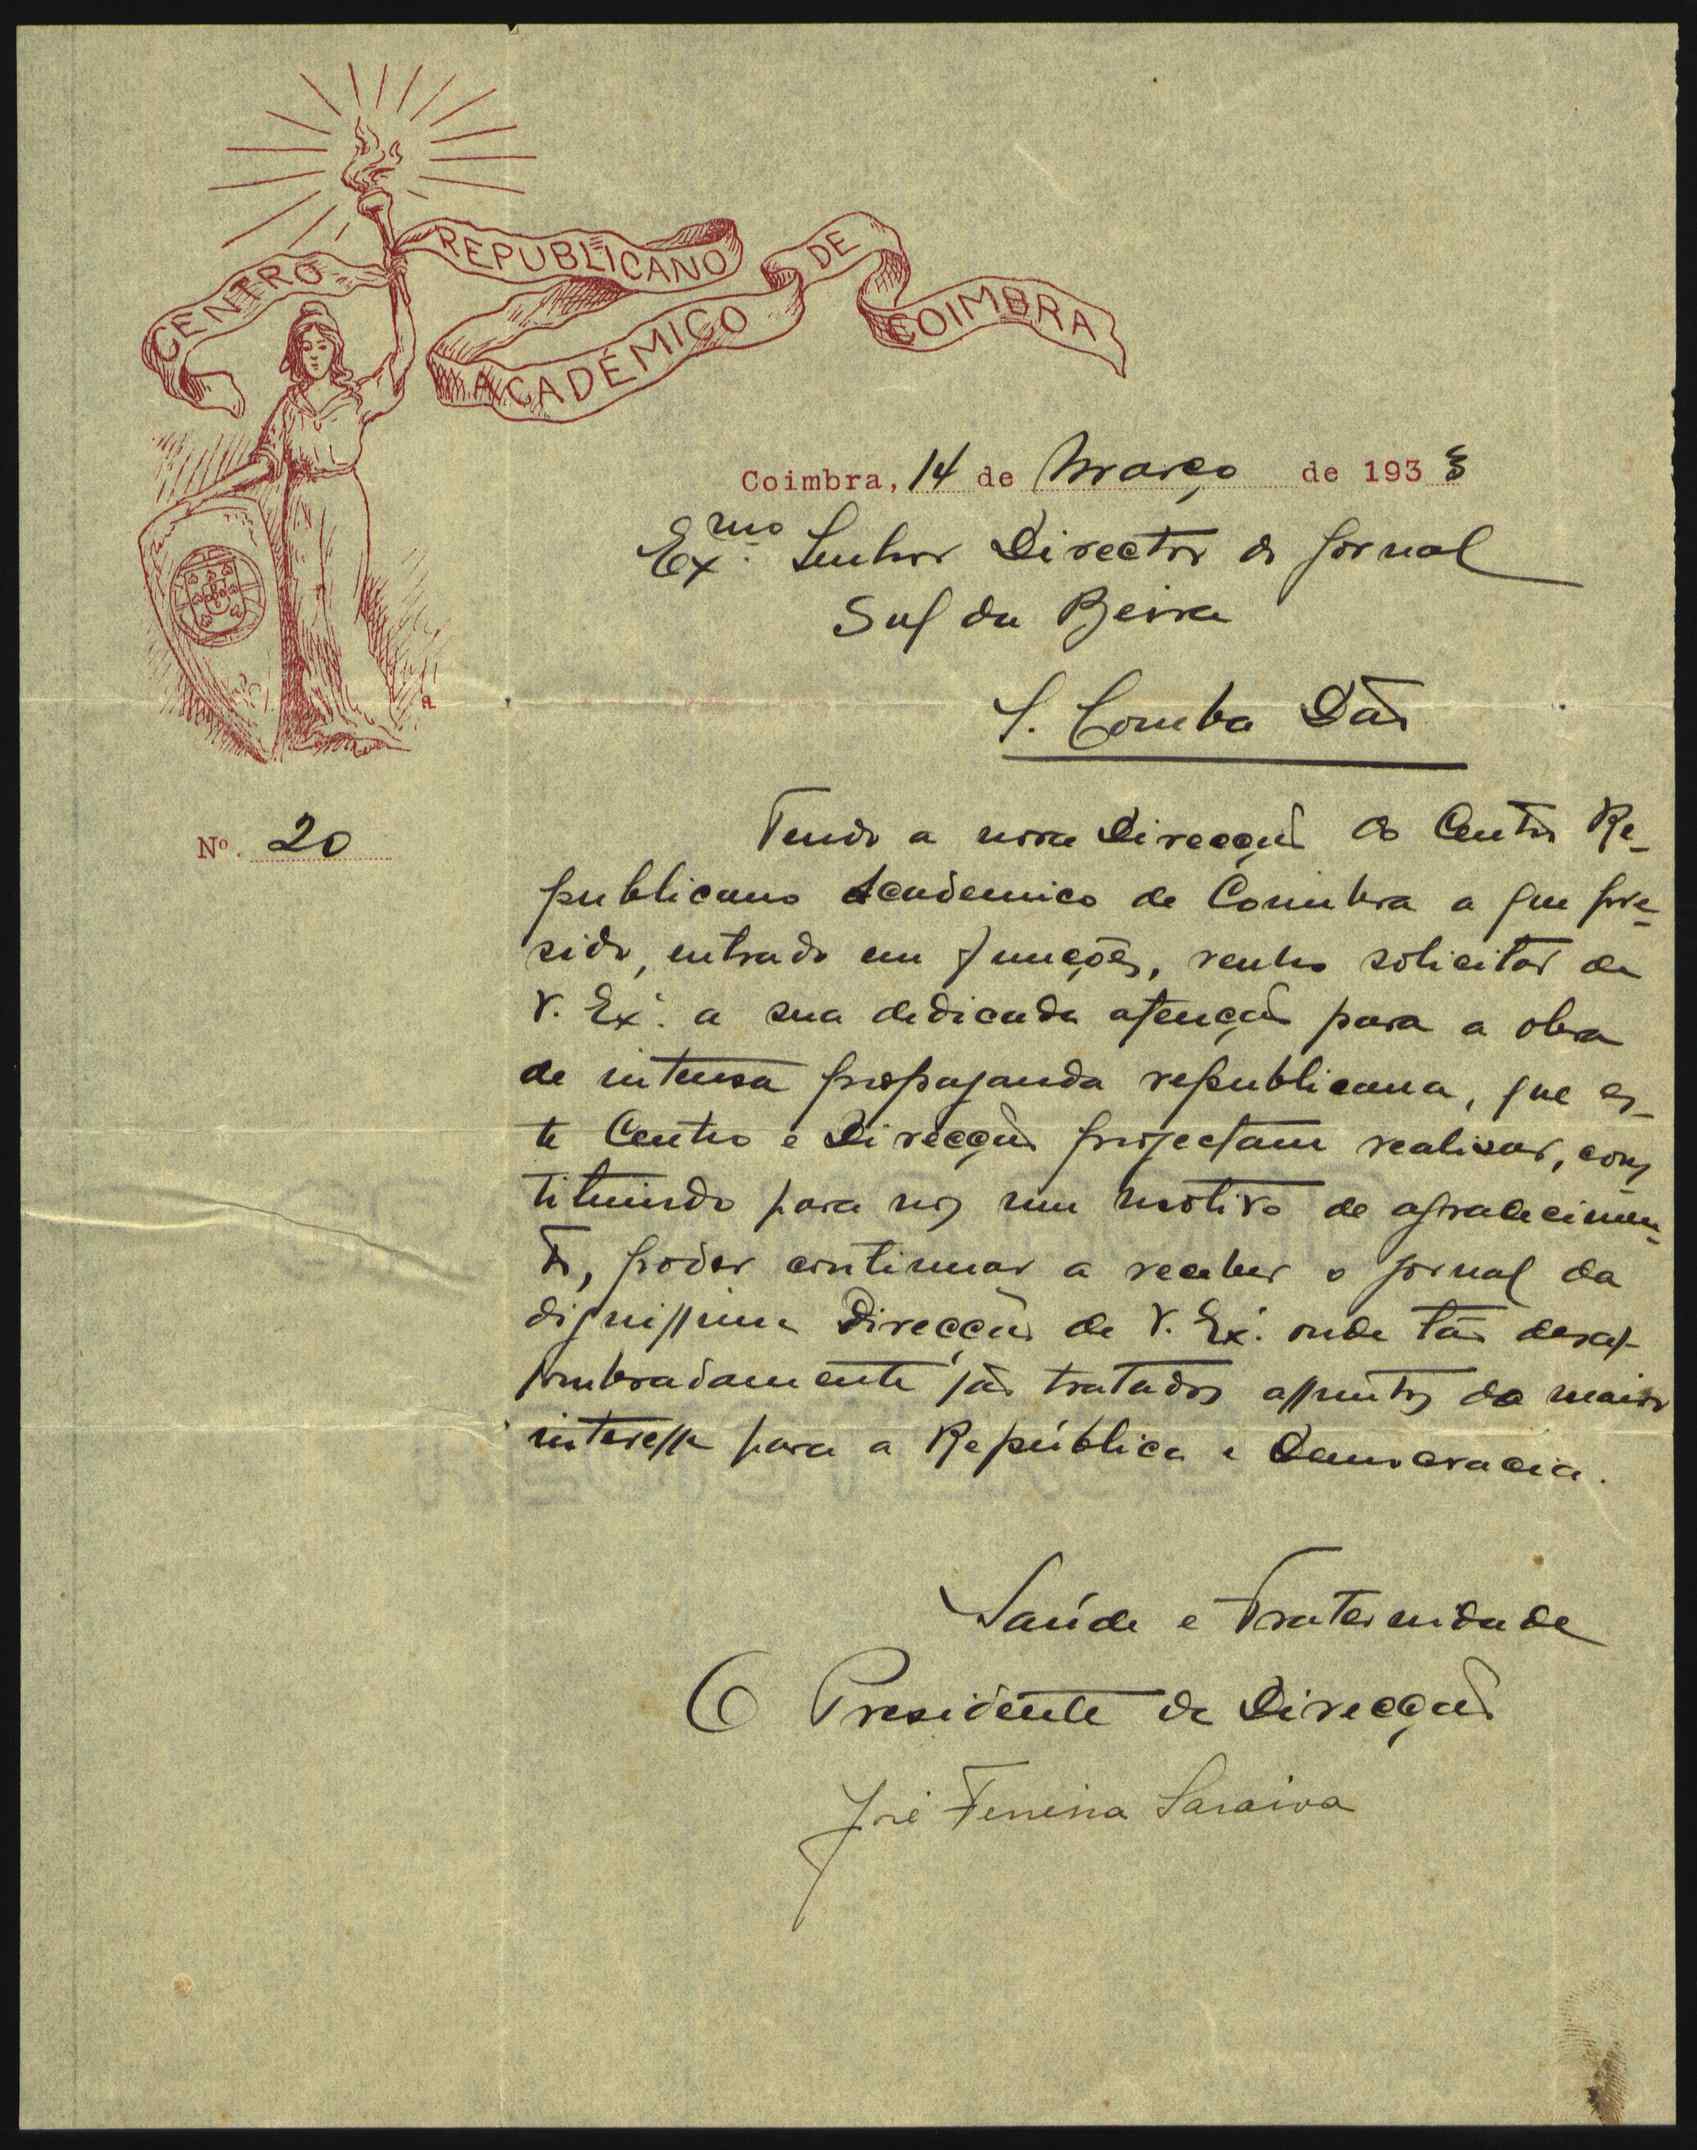 CENTRO REPUBLICANO
ACADÉMICO DE COIMBRA
Coimbra, 14 de Março de 1933
Exmo. Senhor Director do Jornal
Sul da Beira
S. Comba Dão
Nº. 20
Tendo a nova Direcção do Centro Re-
publicano Academico de Coimbra a que pre-
sido, entrado em funções, venho solicitar de
V. Exª. a sua dedicada atenção para a obra
de intensa propaganda republicana, que es-
te Centro e Direcção projectam realisar, cons-
tituindo para nos um motivo de agradecimen-
to, poder continuar a receber o jornal da
dignissima Direcção de V. Exª. onde tão desas-
sombradamente são tratados assuntos do maior
interesse para a República e Democracia.
Saúde e Fraternidade
O Presidente da Direcção
José Ferreira Saraiva